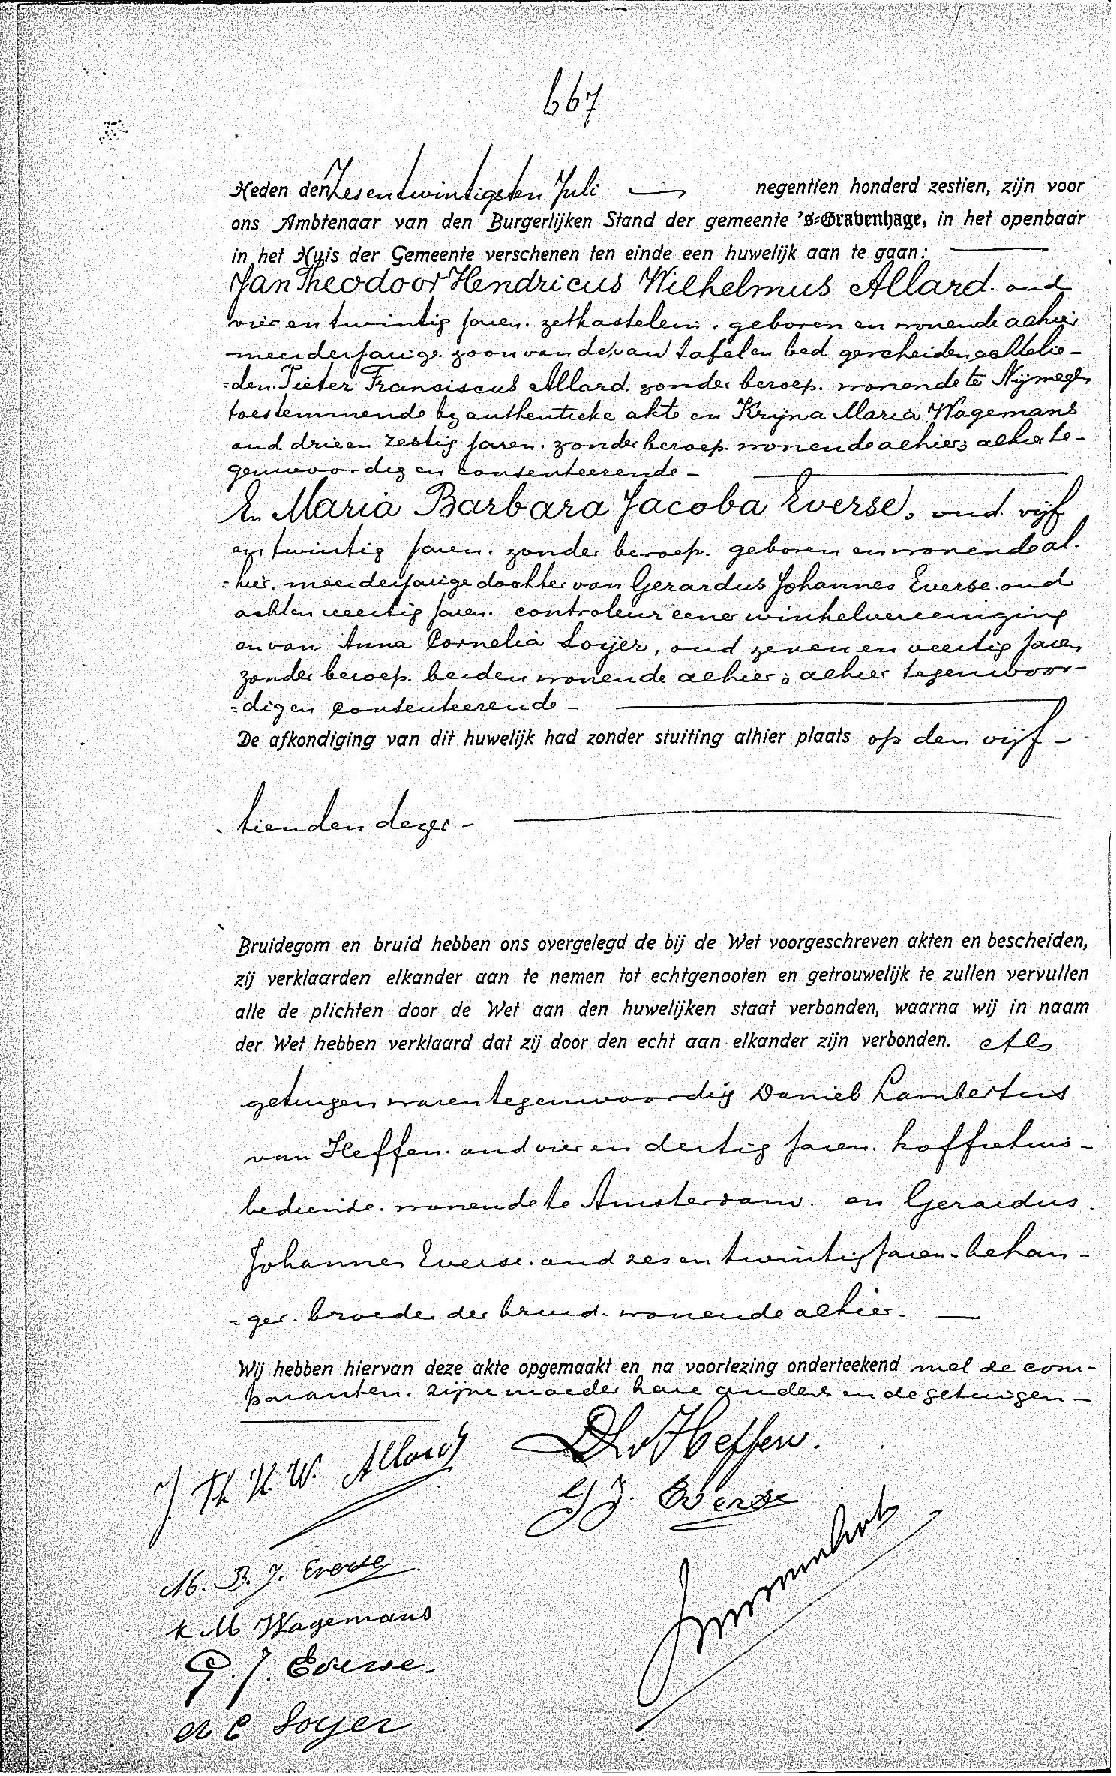 667
Heden den Zesentwintigsten Juli negentien honderd zestien, zijn voor
ons Ambtenaar van den Burgerlijken Stand der gemeente 's-Gravenhage, in het openbaar
in het Huis der Gemeente verschenen ten einde een huwelijk aan te gaan:
Jan Theodoor Hendricus Wilhelmus Allard. oud
vier en twintig jaren. zetkastelein. geboren en wonende alhier
meerderjarige zoon van de van tafel en bed gescheiden echtelie-
den. Pieter Franciscus Allard. zonder beroep. wonende te Nijmegen
toestemmende bij authentieke akte en Kryna Maria Wagemans
oud drie en zestig jaren. zonder beroep. wonende alhier; alhier te-
genwoordig en consenteerende -
En Maria Barbara Jacoba Everse. oud vijf
en twintig jaren. zonder beroep. geboren en wonende al-
hier. meerderjarige dochter van Gerardus Johannes Everse. oud
acht en veertig jaren. controleur eener winkelvereeniging
en van Anna Cornelia Soyer, oud zeven en veertig jaren
zonder beroep. beiden wonende alhier; alhier tegenwoor-
dig en consenteerende -
De afkondiging van dit huwelijk had zonder stuiting alhier plaats op den vijf-
tienden dezer -
Bruidegom en bruid hebben ons overgelegd de bij de Wet voorgeschreven akten en bescheiden,
zij verklaarden elkander aan te nemen tot echtgenooten en getrouwelijk te zullen vervullen
alle de plichten door de Wet aan den huwelijken staat verbonden, waarna wij in naam
der Wet hebben verklaard dat zij door den echt aan elkander zijn verbonden. Als
getuigen waren tegenwoordig Daniel Lambertus
van Heffen. oud vier en dertig jaren. koffiehuis-
bediende. wonende te Amsterdam. en Gerardus
Johannes Everse. oud zes en twintig jaren. behan-
ger. broeder der bruid. wonende alhier.
Wij hebben hiervan deze akte opgemaakt en na voorlezing onderteekend met de com-
paranten. zijne moeder hare ouders en de getuigen -
J Th H. W. Allard
D L v Heffen.
G J. Everse
M. B. J. Everse
K M Wagemans
G. J. Everse.
A C Soyer